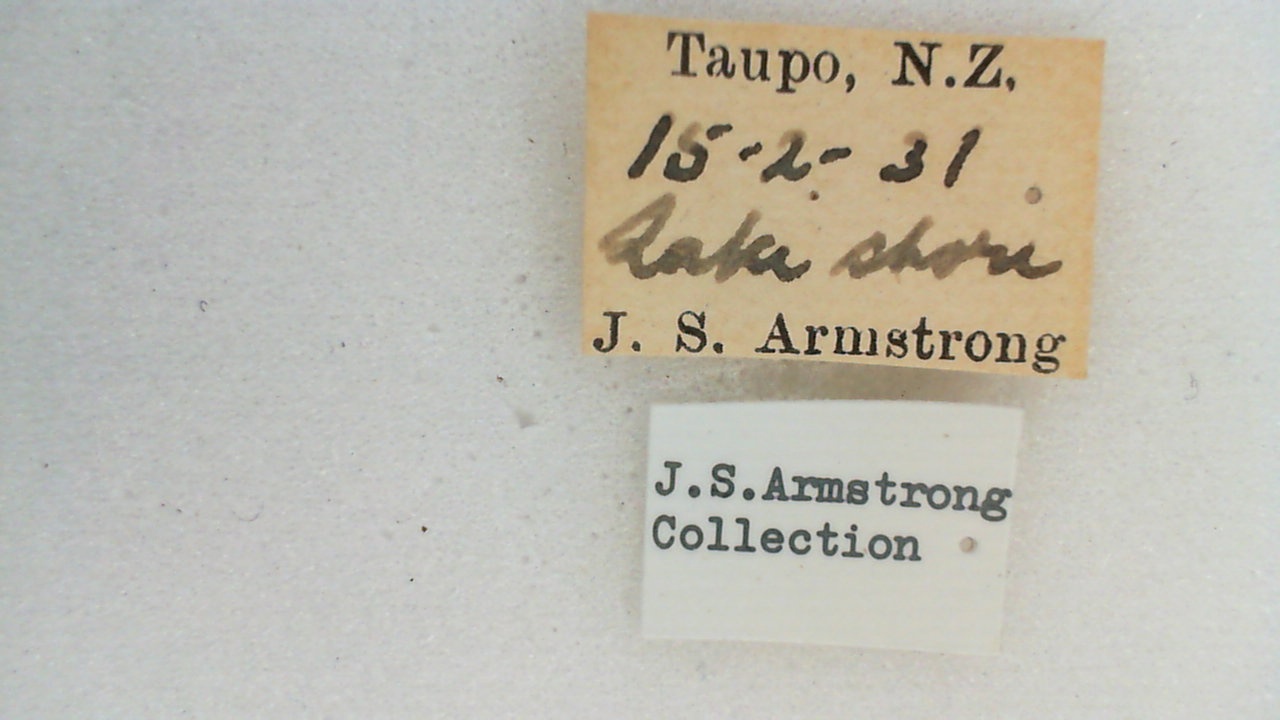 Taupo, N.Z.
15-2-31
Lake shore
J. S. Armstrong
J.S.Armstrong
Collection